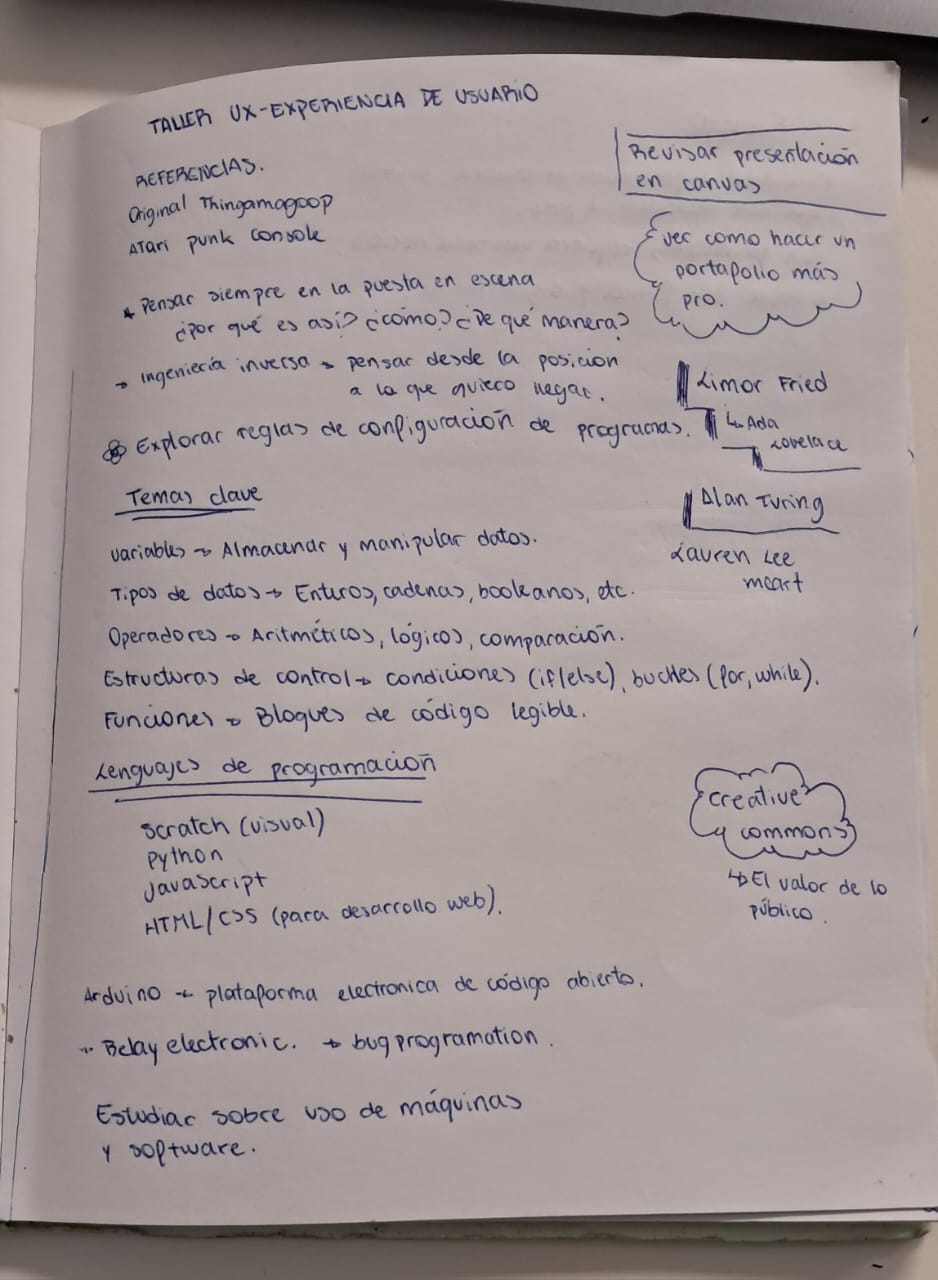 TALLER UX-EXPERIENCIA DE USUARIO
Revisar presentación
en canvas
REFERENCIAS.
Original Thingamagoop
ATARI punk console
ver como hacer un
portafolio más
pro.
* Pensar siempre en la puesta en escena
¿Por qué es así? ¿cómo? ¿De qué manera?
→ Ingeniería inversa → pensar desde la posición
a la que quiero llegar.
Explorar reglas de configuración de programas.
Limor Fried
↳ Ada
Lovelace
Alan Turing
Lauren Lee
mcart
Temas clave
Variables → Almacenar y manipular datos.
Tipos de datos → Enteros, cadenas, booleanos, etc.
Operadores → Aritméticos, lógicos, comparación.
Estructuras de control → condiciones (if/else), bucles (for, while).
Funciones → Bloques de código legible.
Lenguajes de programación
Scratch (visual)
Python
JavaScript
HTML/CSS (para desarrollo web).
creative
commons
↳ El valor de lo
público.
Arduino → plataforma electronica de código abierto.
electronic. → bug programation.
Estudiar sobre uso de máquinas
y software.